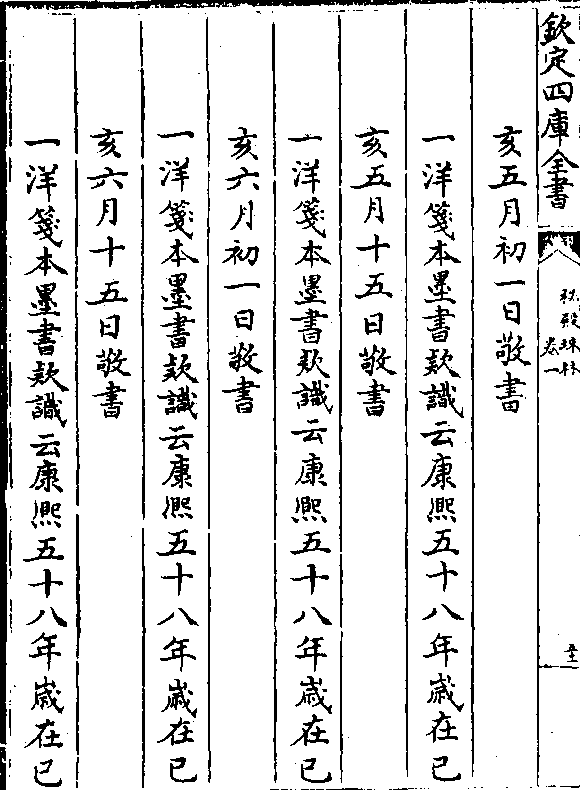 欽定四庫全書
祕殿珠林
卷一
亥五月初一日敬書
一洋箋本墨書款識云康熙五十八年歳在已
亥五月十五日敬書
一洋箋本墨書款識云康熙五十八年歳在已
亥六月初一日敬書
一洋箋本墨書款識云康熙五十八年歳在已
亥六月十五日敬書
一洋箋本墨書款識云康熙五十八年歳在已